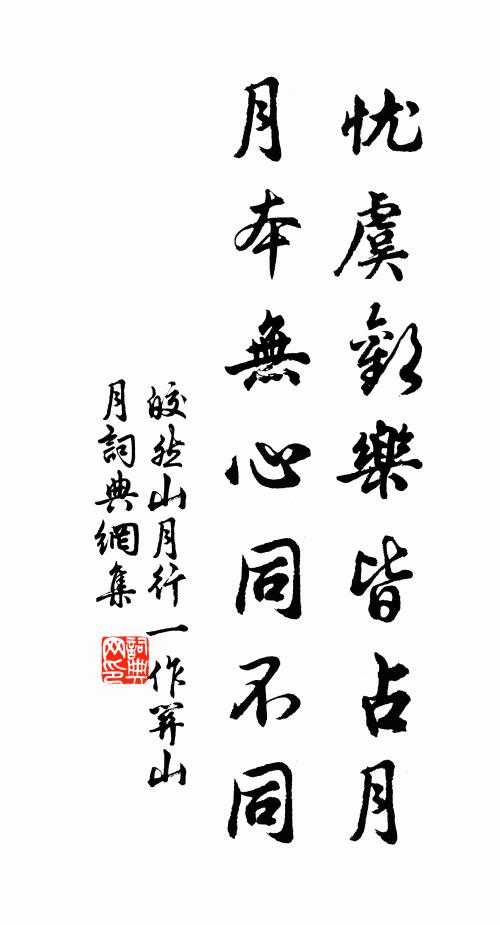 忧虞歡樂皆占月
月本無心同不同
皎然山月行一作關山
月詞典網集
詞典网印